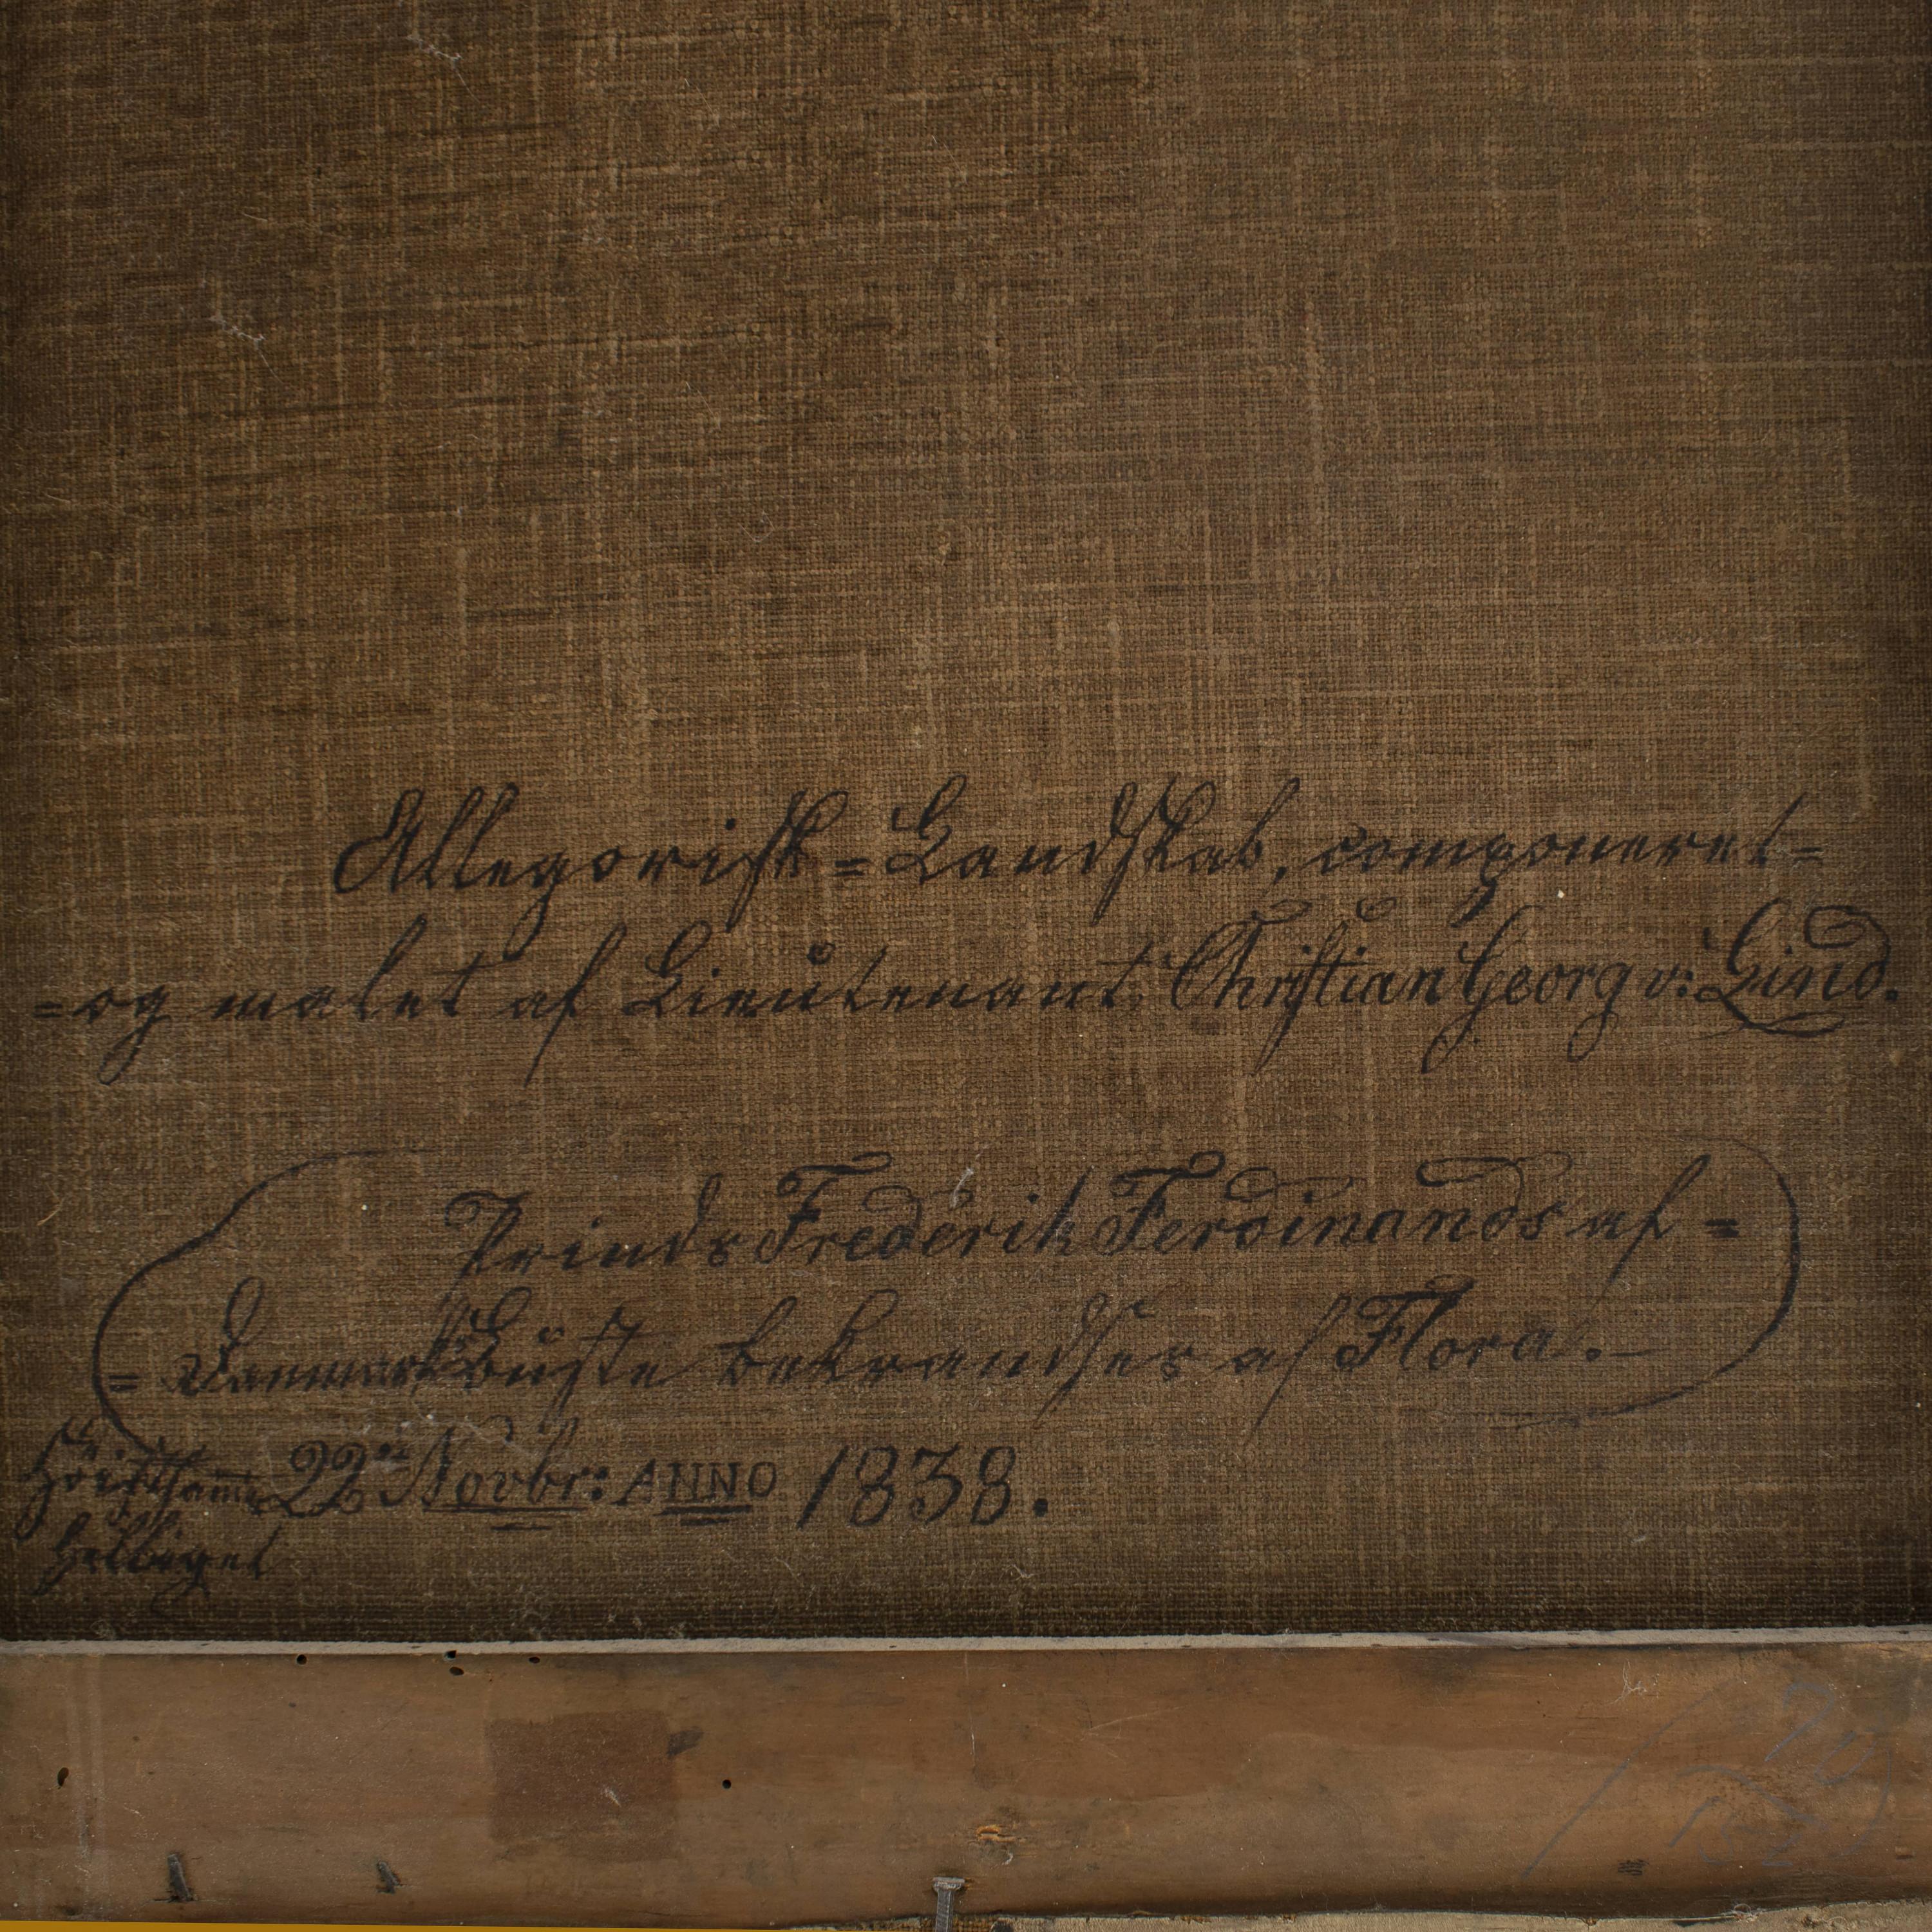 Allegorisk=Landskab, componeret=
=og malet af Lieutenant Christian Georg v: Lind.
Prinds Frederik Ferdinands af=
=Danmarks Buste bekrandses af Flora.
22de Novbr: ANNO 1838.